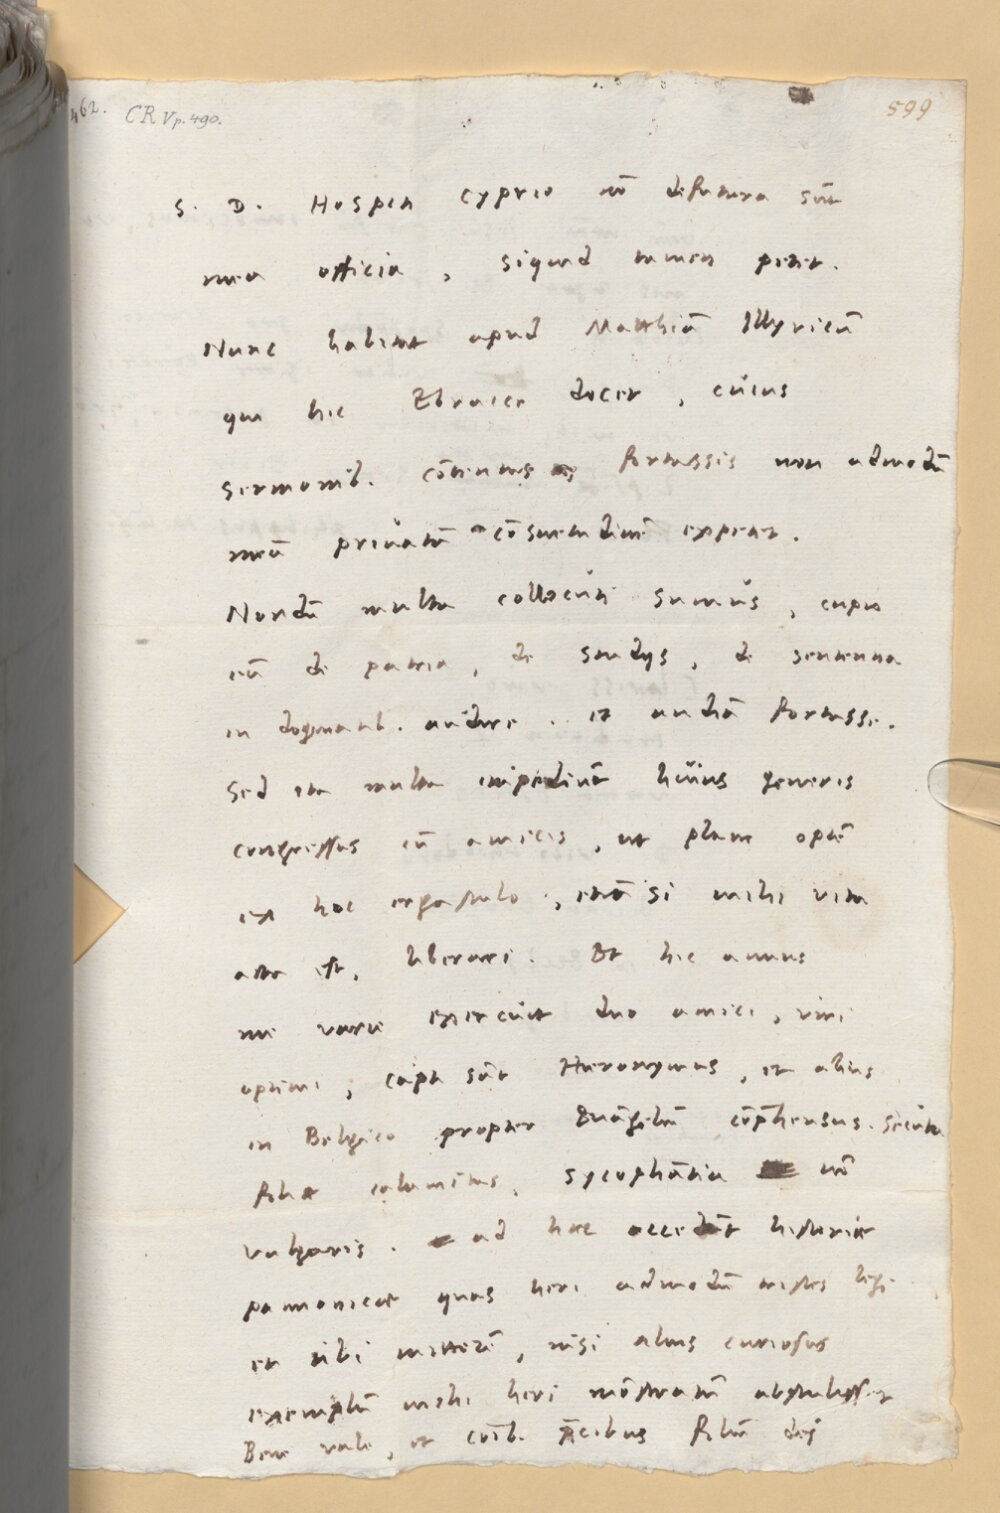 462. CR V p. 490. 599
S. D. Hospiti cyprio nō defutura sūt
mea officia, siquid tamen petet.
Nunc habitat apud Matthiā Illyricū
qui hic Ebraica docet, cuius
sermonib. cōtentus fortassis non admodū
meū priuatā cōsuetudinē expetet.
Nondū multa collocuti sumus, cupio
eū de patria, de studijs, de sententia
in dogmatib. audire. et audiā fortasse.
Sed ita multa impediūt huius generis
congressus cū amicis, ut plane optē
ex hoc ergastulo, etiā si mihi vita
acta est, liberari. Et hic annus
me varie exercuit duo amici, viri
optimi, capti sūt Hieronymus, et alius
in Belgico propter Euāgeliū cōp̄hensus. Secuta
filiæ calamitas, sycophātia nō
vulgaris. ad hæc accedūt historiæ
pannonicæ quas heri admodū tristes legi
et tibi mitterē, nisi alius curiosus
exemplū mihi heri mōstratū abstulisset
Bene vale, et cōib. p̄cibus filiū dej